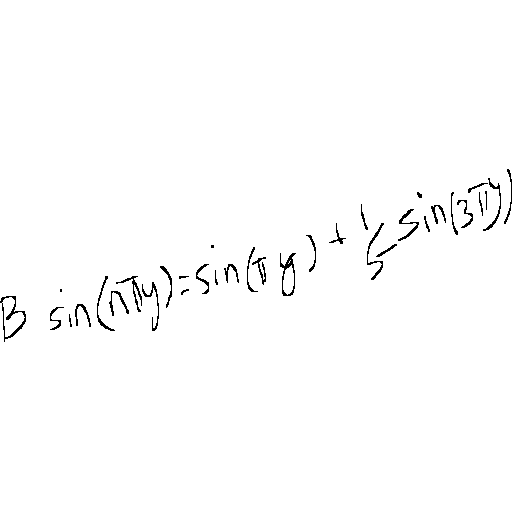 B sin(nπy)=sin(πy) + 1/5 sin(3πy)